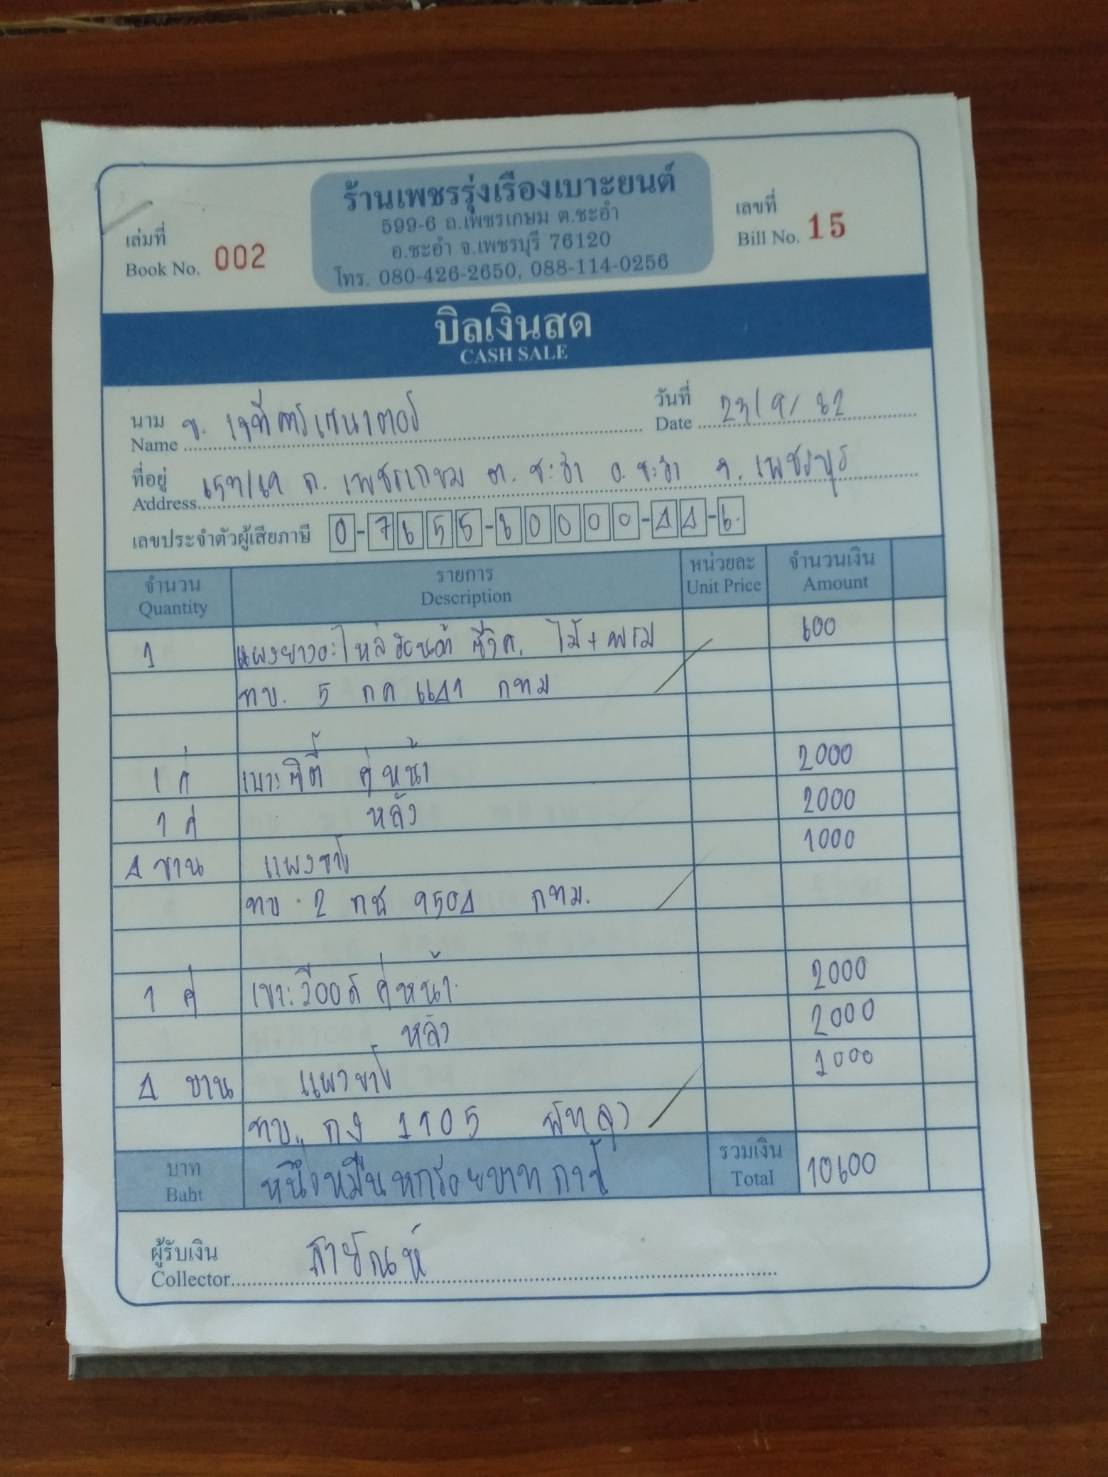 ร้านเพชรรุ่งเรืองเบาะยนต์
599-6 ถ.เพชรเกษม ต.ชะอำ
อ.ชะอำ จ.เพชรบุรี 76120
โทร. 080-426-2650, 088-114-0256
เล่มที่
Book No. 002
เลขที่
Bill No. 15
บิลเงินสด
CASH SALE
นาม
Name
วันที่
Date 23/9/62
ที่อยู่
Address ถ. เพชรเกษม ต. ชะอำ อ. ชะอำ จ. เพชรบุรี
เลขประจำตัวผู้เสียภาษี 0-7655-60000-44-6
จำนวน รายการ หน่วยละ จำนวนเงิน
Quantity Description Unit Price Amount
1 600
ทบ. 5 กท
1 คู่ เบาะซิตี้ คู่หน้า 2000
1 คู่ หลัง 2000
4 บาน แผงข้าง 1000
ทบ. 2 9504 กทม.
1 คู่ เบาะวีออส คู่หน้า 2000
หลัง 2000
4 บาน แผงข้าง 1000
ทบ. กง 1105
บาท หนึ่งหมื่นหกร้อยบาทถ้วน รวมเงิน 10600
Baht Total
ผู้รับเงิน
Collector